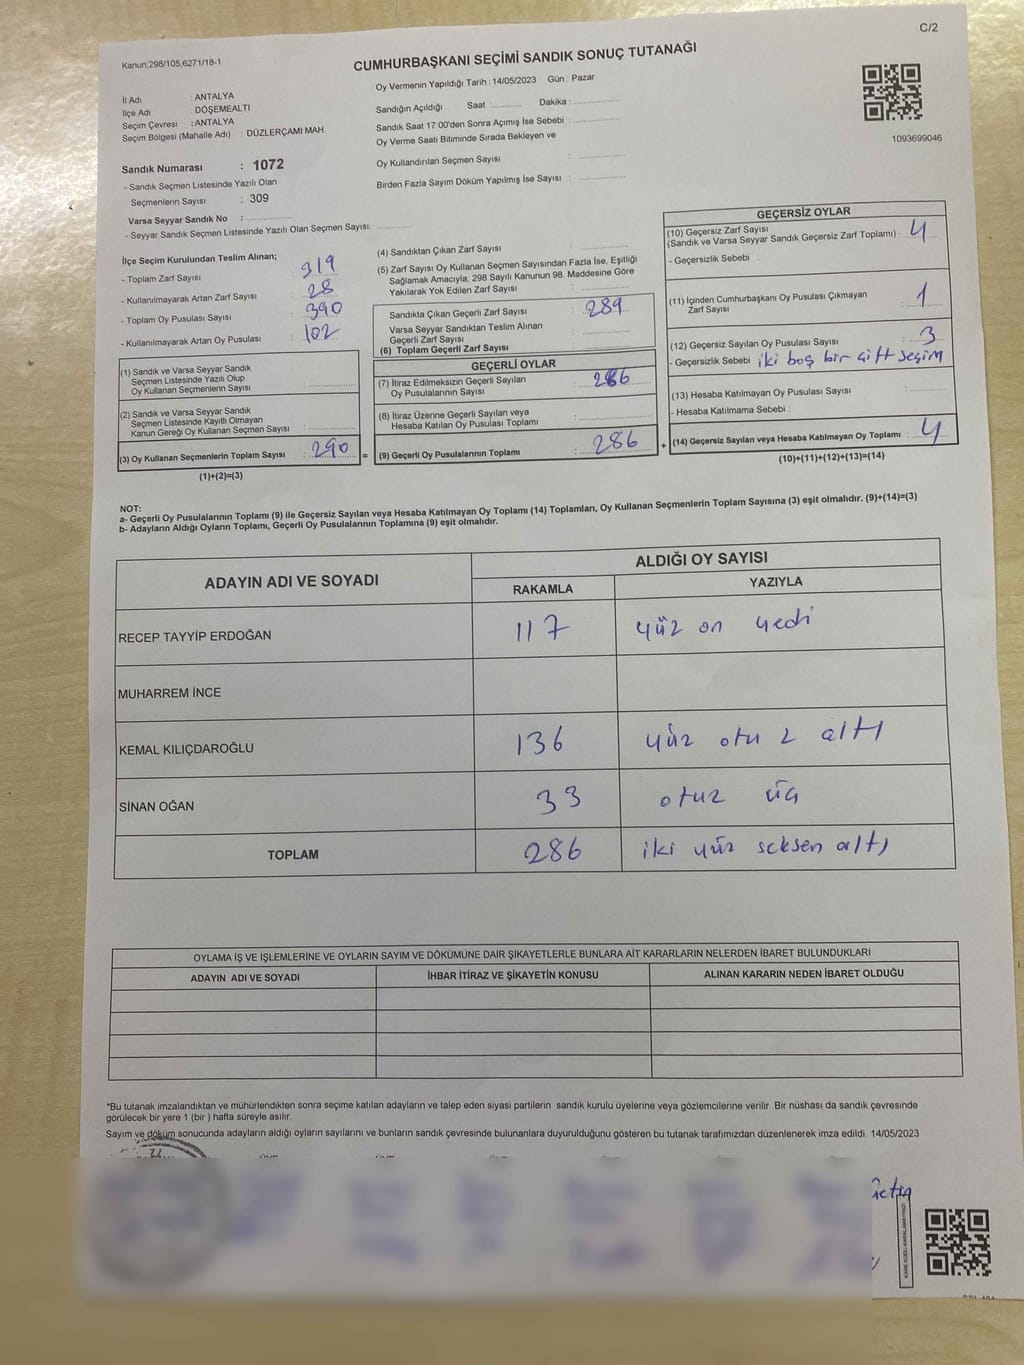 C/2
Kanun;298/105,6271/18-1
CUMHURBAŞKANI SEÇİMİ SANDIK SONUÇ TUTANAĞI
Oy Vermenin Yapıldığı Tarih : 14/05/2023 Gün : Pazar
İl Adı : ANTALYA
İlçe Adı : DÖŞEMEALTI
Seçim Çevresi : ANTALYA
Seçim Bölgesi (Mahalle Adı) : DÜZLERÇAMI MAH.
Sandığın Açıldığı Saat : Dakika :
Sandık Saat 17:00'den Sonra Açımış İse Sebebi :
Oy Verme Saati Bitiminde Sırada Bekleyen ve
Oy Kullandırılan Seçmen Sayısı :
Birden Fazla Sayım Döküm Yapılmış İse Sayısı :
1093699046
Sandık Numarası : 1072
- Sandık Seçmen Listesinde Yazılı Olan
Seçmenlerin Sayısı : 309
Varsa Seyyar Sandık No :
- Seyyar Sandık Seçmen Listesinde Yazılı Olan Seçmen Sayısı:
İlçe Seçim Kurulundan Teslim Alınan;
- Toplam Zarf Sayısı : 319
- Kullanılmayarak Artan Zarf Sayısı : 28
- Toplam Oy Pusulası Sayısı : 390
- Kullanılmayarak Artan Oy Pusulası : 102
(1) Sandık ve Varsa Seyyar Sandık
Seçmen Listesinde Yazılı Olup
Oy Kullanan Seçmenlerin Sayısı :
(2) Sandık ve Varsa Seyyar Sandık
Seçmen Listesinde Kayıtlı Olmayan
Kanun Gereği Oy Kullanan Seçmen Sayısı :
(3) Oy Kullanan Seçmenlerin Toplam Sayısı : 290 =
(1)+(2)=(3)
(4) Sandıktan Çıkan Zarf Sayısı :
(5) Zarf Sayısı Oy Kullanan Seçmen Sayısından Fazla İse, Eşitliği
Sağlamak Amacıyla, 298 Sayılı Kanunun 98. Maddesine Göre
Yakılarak Yok Edilen Zarf Sayısı :
Sandıkta Çıkan Geçerli Zarf Sayısı : 289
Varsa Seyyar Sandıktan Teslim Alınan
Geçerli Zarf Sayısı :
(6) Toplam Geçerli Zarf Sayısı :
GEÇERLİ OYLAR
(7) İtiraz Edilmeksizin Geçerli Sayılan
Oy Pusulalarının Sayısı : 286
(8) İtiraz Üzerine Geçerli Sayılan veya
Hesaba Katılan Oy Pusulası Toplamı :
(9) Geçerli Oy Pusulalarının Toplamı : 286 +
GEÇERSİZ OYLAR
(10) Geçersiz Zarf Sayısı
(Sandık ve Varsa Seyyar Sandık Geçersiz Zarf Toplamı) : 4
- Geçersizlik Sebebi :
(11) İçinden Cumhurbaşkanı Oy Pusulası Çıkmayan
Zarf Sayısı : 1
(12) Geçersiz Sayılan Oy Pusulası Sayısı : 3
- Geçersizlik Sebebi : iki boş bir çift seçim
(13) Hesaba Katılmayan Oy Pusulası Sayısı :
- Hesaba Katılmama Sebebi :
(14) Geçersiz Sayılan veya Hesaba Katılmayan Oy Toplamı : 4
(10)+(11)+(12)+(13)=(14)
NOT:
a- Geçerli Oy Pusulalarının Toplamı (9) ile Geçersiz Sayılan veya Hesaba Katılmayan Oy Toplamı (14) Toplamları, Oy Kullanan Seçmenlerin Toplam Sayısına (3) eşit olmalıdır. (9)+(14)=(3)
b- Adayların Aldığı Oyların Toplamı, Geçerli Oy Pusulalarının Toplamına (9) eşit olmalıdır.
ADAYIN ADI VE SOYADI ALDIĞI OY SAYISI
RAKAMLA YAZIYLA
RECEP TAYYİP ERDOĞAN 117 yüz on yedi
MUHARREM İNCE
KEMAL KILIÇDAROĞLU 136 yüz otuz altı
SİNAN OĞAN 33 otuz üç
TOPLAM 286 iki yüz seksen altı
OYLAMA İŞ VE İŞLEMLERİNE VE OYLARIN SAYIM VE DÖKÜMÜNE DAİR ŞİKAYETLERLE BUNLARA AİT KARARLARIN NELERDEN İBARET BULUNDUKLARI
ADAYIN ADI VE SOYADI İHBAR İTİRAZ VE ŞİKAYETİN KONUSU ALINAN KARARIN NEDEN İBARET OLDUĞU
*Bu tutanak imzalandıktan ve mühürlendikten sonra seçime katılan adayların ve talep eden siyasi partilerin sandık kurulu üyelerine veya gözlemcilerine verilir. Bir nüshası da sandık çevresinde
görülecek bir yere 1 (bir ) hafta süreyle asılır.
Sayım ve döküm sonucunda adayların aldığı oyların sayılarını ve bunların sandık çevresinde bulunanlara duyurulduğunu gösteren bu tutanak tarafımızdan düzenlenerek imza edildi. 14/05/2023